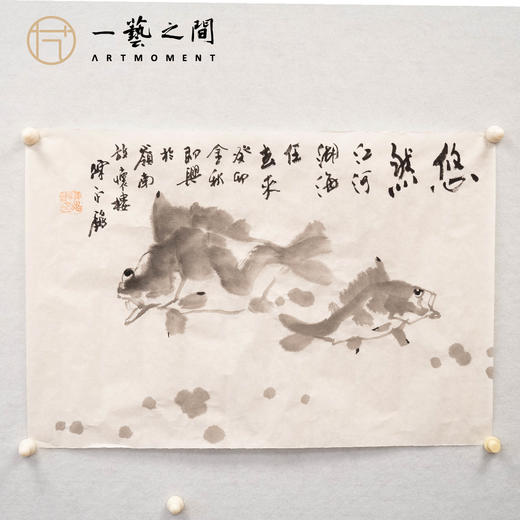 一藝之間
ARTMOMENT
悠
然
江河
湖海
任
去来
癸卯
金秋
即興
於
嶺南
放懷樓
陳